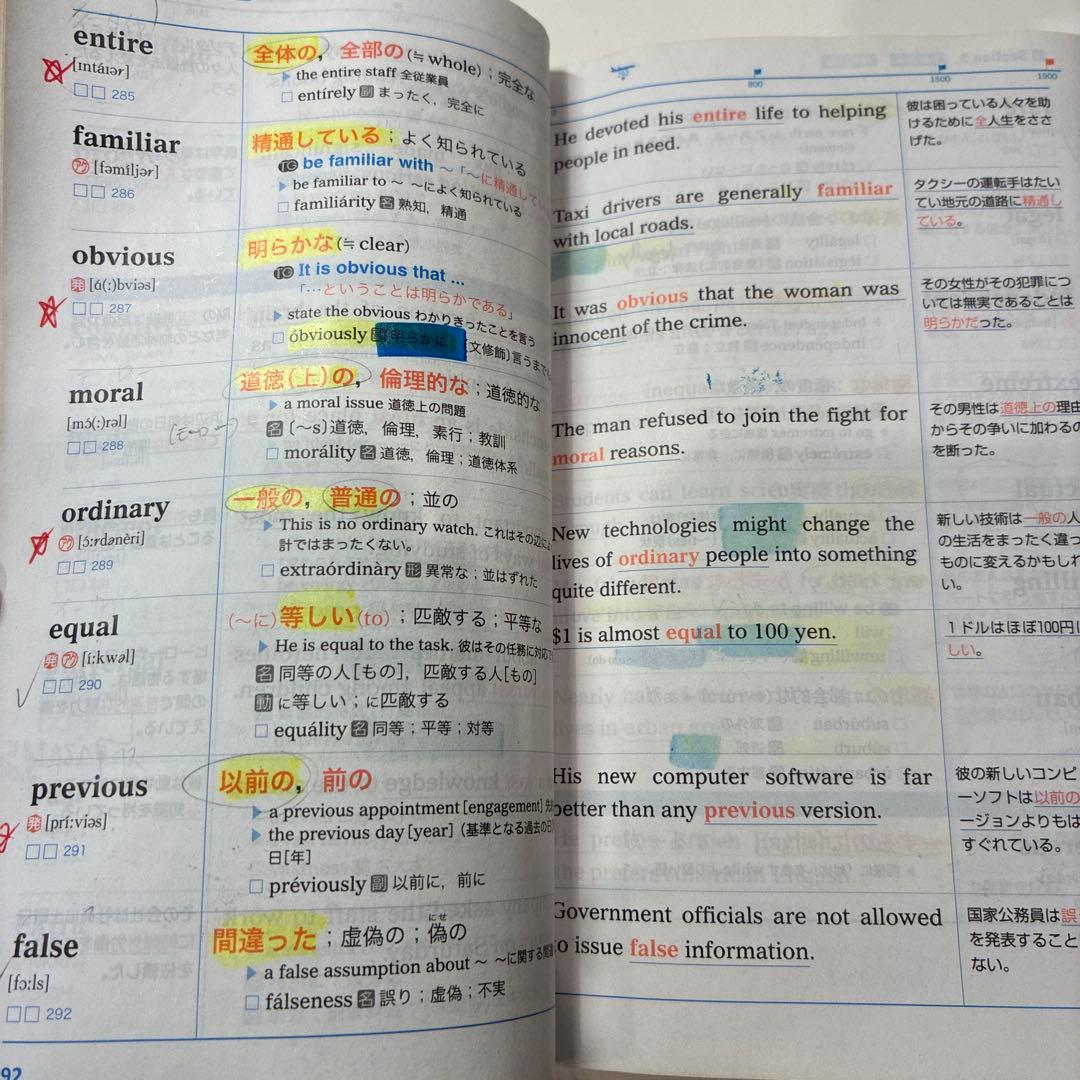 entire
[ɪntáɪər]
285
全体の, 全部の(≒ whole)；完全な
▶ the entire staff 全従業員
□ entírely 副 まったく，完全に
familiar
ア [fəmíljər]
286
精通している；よく知られている
TG be familiar with ～「～に精通してい
▶ be familiar to ～ ～によく知られている
□ famìliárity 名 熟知，精通
obvious
発 [ɑ́(:)bviəs]
287
明らかな(≒ clear)
TG It is obvious that ...
「…ということは明らかである」
▶ state the obvious わかりきったことを言う
□ óbviously 副 明らかに；(文修飾)言うまでも
moral
[mɔ́(:)rəl]
288
道徳(上)の, 倫理的な；道徳的な
▶ a moral issue 道徳上の問題
名 (～s)道徳，倫理，素行；教訓
□ morálity 名 道徳，倫理；道徳体系
ordinary
ア [ɔ́:rdənèri]
289
一般の, 普通の；並の
▶ This is no ordinary watch. これはその辺に
計ではまったくない。
□ extraórdinàry 形 異常な；並はずれた
equal
発 ア [í:kwəl]
290
(～に)等しい(to)；匹敵する；平等な
▶ He is equal to the task. 彼はその任務に対応で
名 同等の人[もの]，匹敵する人[もの]
動 に等しい；に匹敵する
□ equálity 名 同等；平等；対等
previous
発 [prí:viəs]
291
以前の, 前の
▶ a previous appointment [engagement]
▶ the previous day [year] (基準となる過去の日
日[年]
□ préviously 副 以前に，前に
false
[fɔ:ls]
292
間違った；虚偽の；偽の
にせ
▶ a false assumption about ～ ～に関する
□ fálseness 名 誤り；虚偽；不実
92
800
1500
1900
He devoted his entire life to helping
people in need.
彼は困っている人々を助
けるために全人生をささ
げた。
Taxi drivers are generally familiar
with local roads.
タクシーの運転手はたい
てい地元の道路に精通し
ている。
It was obvious that the woman was
innocent of the crime.
その女性がその犯罪につ
いては無実であることは
明らかだった。
The man refused to join the fight for
moral reasons.
その男性は道徳上の理由
からその争いに加わるの
を断った。
New technologies might change the
lives of ordinary people into something
quite different.
新しい技術は一般の人
の生活をまったく違っ
ものに変えるかもしれ
い。
$1 is almost equal to 100 yen.
1ドルはほぼ100円に
しい。
His new computer software is far
better than any previous version.
彼の新しいコンピ
ーソフトは以前の
ージョンよりもは
すぐれている。
Government officials are not allowed
to issue false information.
国家公務員は誤
を発表すること
ない。